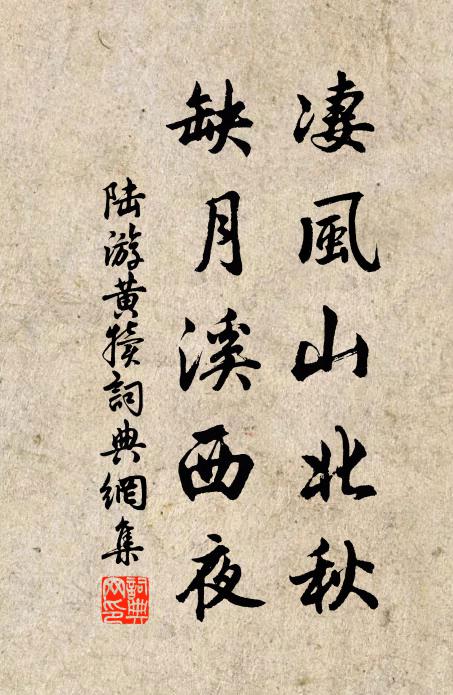 凄風山北秋
缺月溪西夜
陆游黄犊詞典網集
詞典
网印